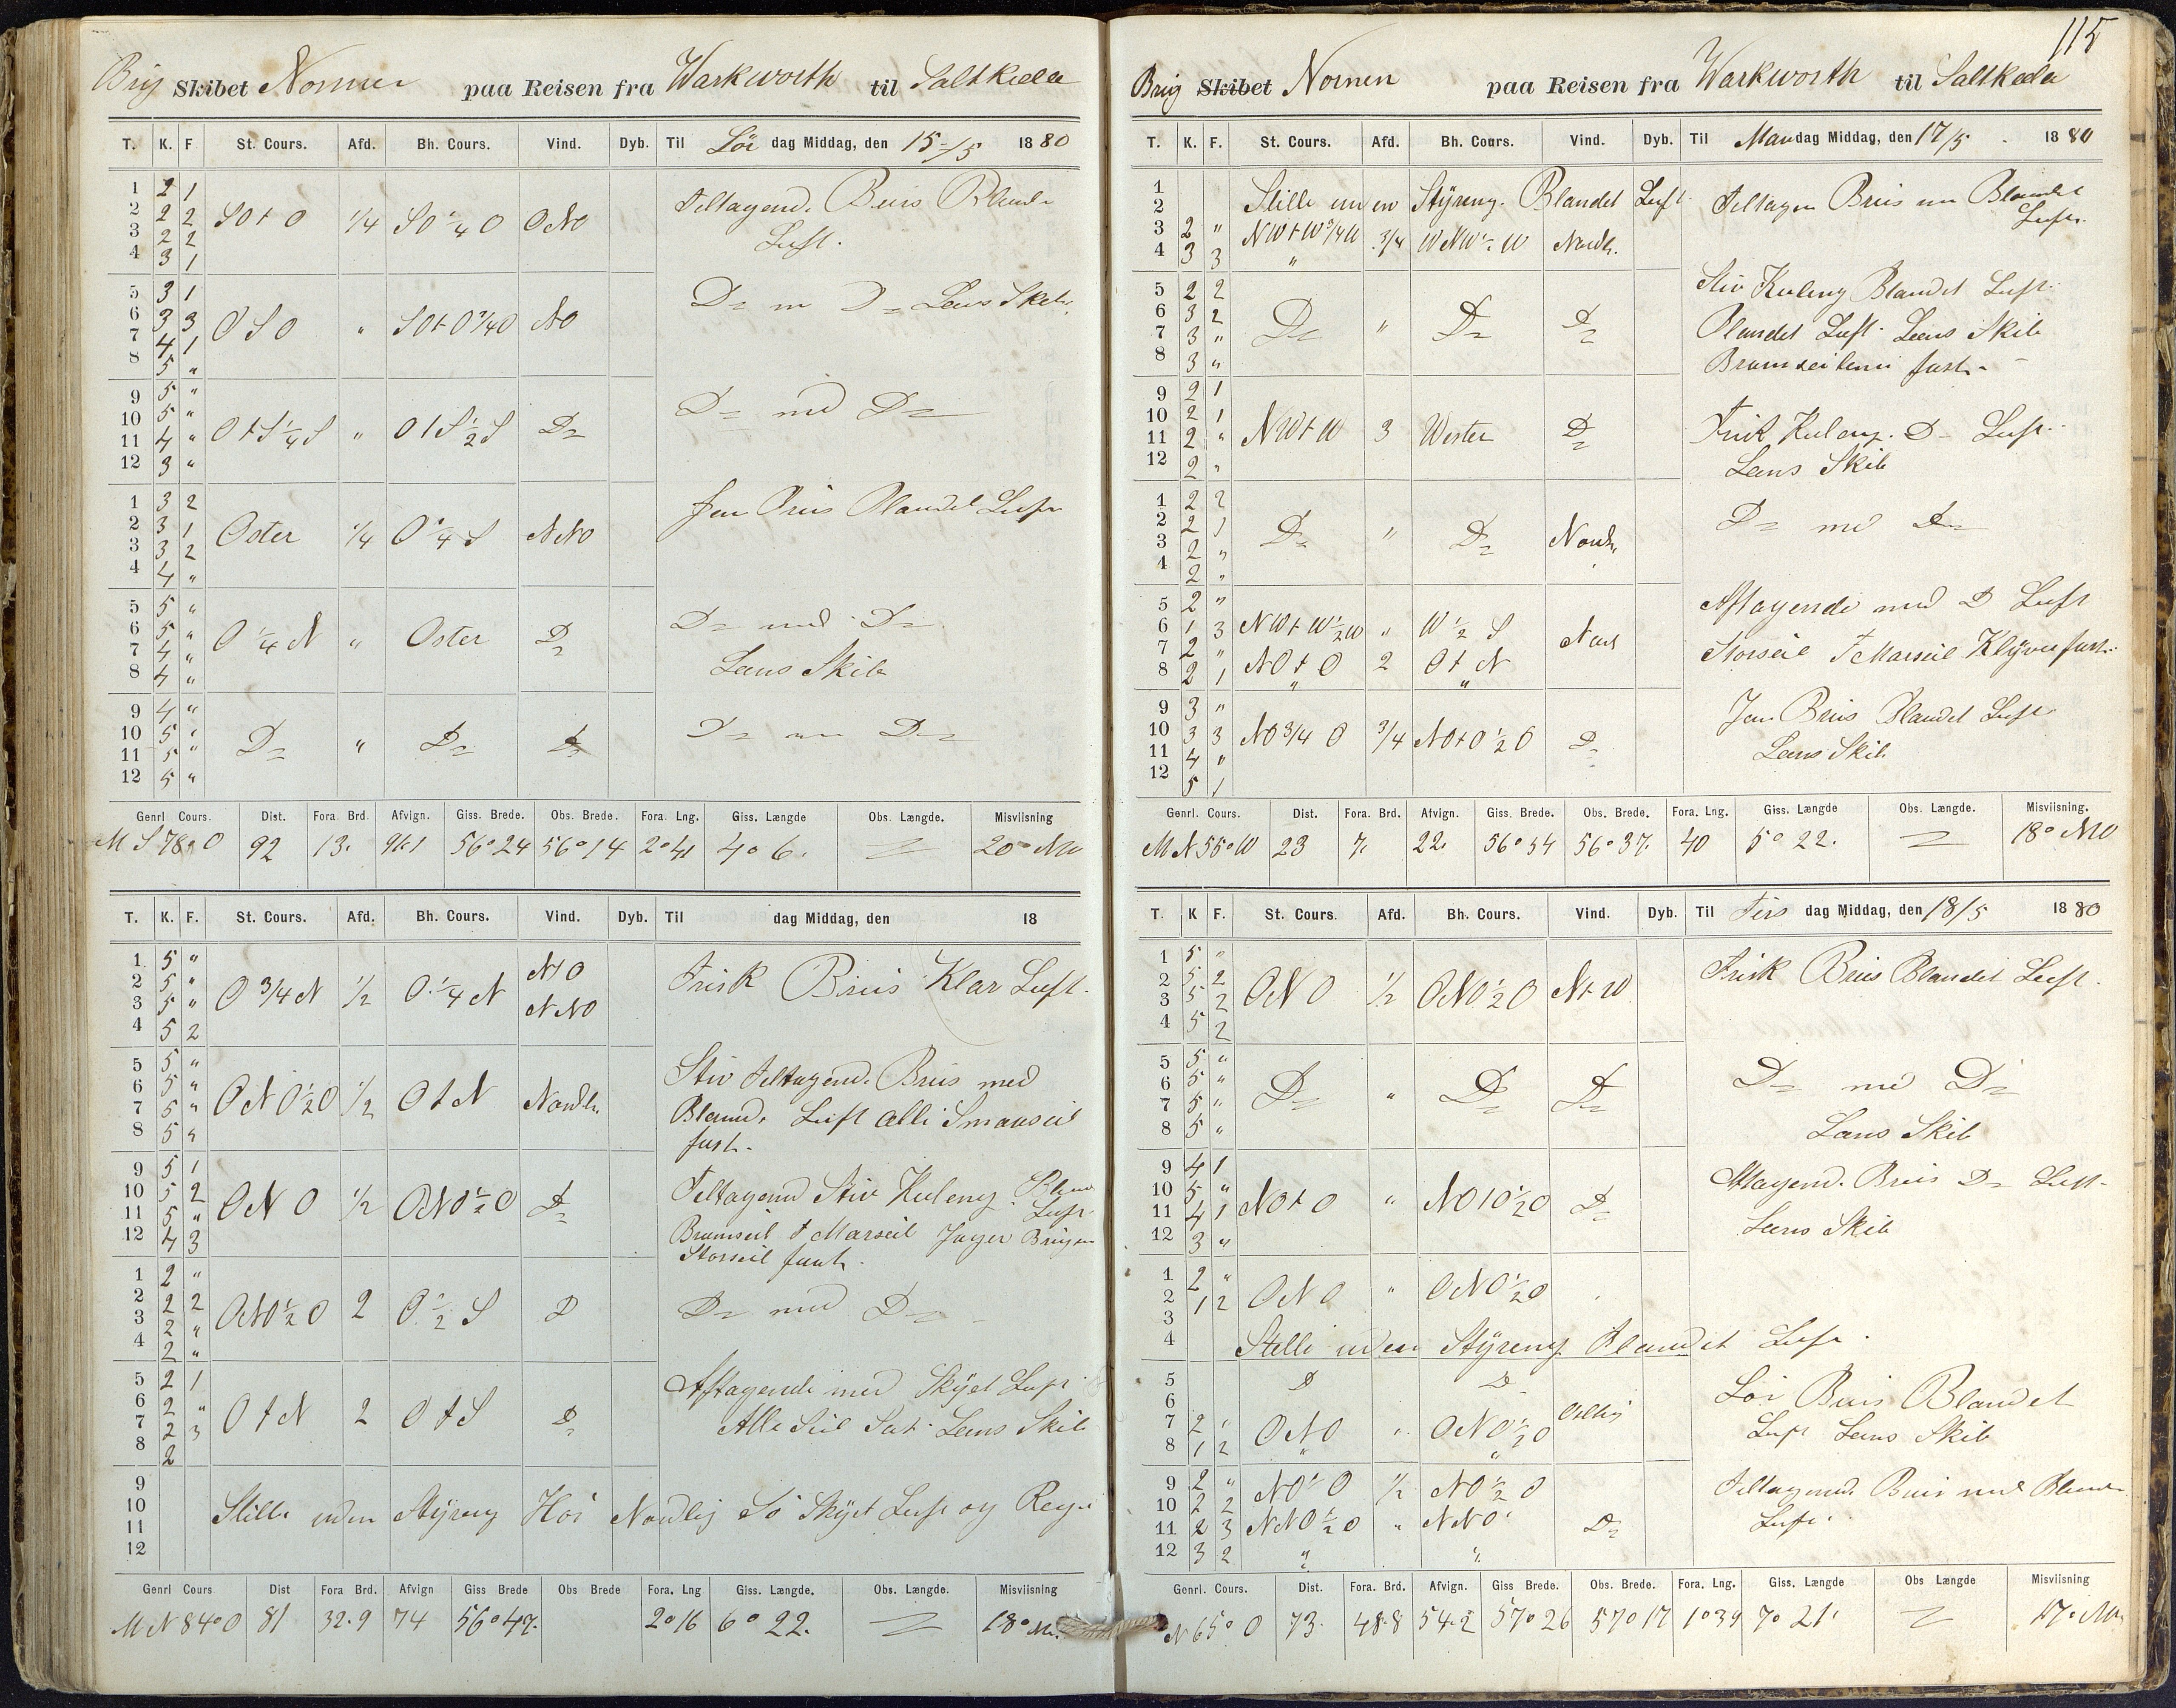 Brig Skibet Nornen paa Reisen fra Warkworth til Saltkeda
T. K. F St. Cours. Afd. Bh. Cours. Vind. Dyb. Til Lör dag Middag, den 15/5 1880
1 2 1
2 2 2 SO t O 1/4 SO 1/4 O ONO Tiltagend. Bris Bland.
3 2 2 Luft.
4 3 1
5 3 1 Lens Skib.
6 3 3 OSO " SO t O 3/4 O NO
7 4 1
8 5 "
9 5 "
10 5 " O t S 1/4 S " O t S 1/2 S D= D= med D=
11 4 "
12 3 "
1 3 2 Bris Blandet Luft
2 3 1 Oster 1/4 O 1/4 S NNO
3 3 2
4 4 "
5 5 " D= med D=
6 5 " O 1/4 N " Oster D=
7 4 " Lens Skib
8 4 "
9 4 "
10 5 " D= " D= D= D= D=
11 5 "
12 5 "
Genrl Cours. Dist. Fora. Brd. Afvign. Giss. Brede. Obs. Brede. Fora. Lng. Giss. Længde Obs. Længde. Misviisning
M S 78° O 92 13. 91.1 56°24 56°14 2°41 4°6. 20° NW
T. K. F. St. Cours. Afd. Bh. Cours. Vind. Dyb. Til dag Middag, den 18
1 5 " NO
2 5 " O 3/4 N 1/2 O 1/4 N Frisk Briis Klar Luft.
3 5 " NNO
4 5 2
5 5 " Stiv Tiltagend. Briis med
6 5 " ONO 1/2 O 1/2 O t N Nordl.
7 5 " Bland. Luft alli Smaaseil
8 5 " fast.
9 5 1
10 5 2 ONO 1/2 ONO 1/2 O D= Tiltagend Stiv Kuleng. Bland
11 5 " Luft
12 4 3 Bramseil t Marseil Jager
Storseil fast.
1 2 "
2 2 2 ONO 1/2 O 2 O 1/2 S D D= med D=
3 2 "
4 2 "
5 2 1 Aftagende med Skÿet Luft
6 2 " O t N 2 O t S D=
7 2 3 Alle Seil Sat. Lens Skib
8 2
9
10 Stille uden Stÿreng Höi Nordlig Sö Skÿet Luft og Regn
11
12
Genrl Cours Dist Fora Brd. Afvign Giss Brede Obs Brede Fora. Lng Giss. Længde. Obs. Længde. Misviisning
M N 84° O 81 32.9 74 56°47. 2°16 6°22. 18°
115
Brig Skibet Nornen paa Reisen fra Warkworth til Saltkeda
T. K. F. St. Cours. Afd. Bh. Cours. Vind. Dyb. Til Mandag Middag, den 17/5 1880
1 Stille uden Stÿreng. Blandet Luft Tiltagen Briis Blandet
2 Luft.
3 2 " NW t W 3/4 W 3/4 WNW 1/2 W Nordl.
4 3 3 "
5 2 2 Stiv Kuleng Blandet Luft.
6 3 2 D= " D= D= Blandet Luft. Lens Skib
7 3 "
8 3 " Bramseilene fast.
9 2 1
10 2 1 NW t W 3 Wester D= Frisk Kuleng. D= Luft.
11 2 "
12 2 " Lens Skib
1 2 2
2 2 1 D= " D= Nordl. D= med D=
3 2 "
4 2 "
5 2 " Aftagende med D Luft
6 1 3 NW t W 1/2 W " W 1/2 S Nord
7 2 " NO t O 2 O t N Storseil t Marseil Klÿver fast.
8 2 1 " "
9 3 " Jevn Briis Blandet Luft
10 3 3 NO 3/4 O 3/4 NO t O 1/2 O D=
11 4 " Lens Skib
12 5 1
Genrl. Cours. Dist. Fora. Brd. Afvign. Giss. Brede. Obs. Brede. Fora. Lng. Giss. Længde Obs. Længde. Misviisning.
M N 55° W 23 7. 22. 56°54 56°37. 40 5°22. 18° NW
T. K F. St. Cours. Afd. Bh. Cours. Vind. Dyb. Til Tirs dag Middag, den 18/5 1880
1 5 "
2 5 2 ONO 1/2 ONO 1/2 O N t W Frisk Briis Blandet Luft.
3 5 2
4 5 2
5 5 "
6 5 " D= " D= D= D= med D=
7 5 "
8 5 " Lens Skib
9 4 1 Aftagend. Briis D= Luft.
10 5 " NO t O " NO t O 1/2 O D=
11 4 1 Lens Skib
12 3 "
1 2 "
2 1 2 ONO " ONO 1/2 O
3
4 Stille uden Stÿreng Blandet Luft.
5 D D
6 Löi Bris Blandet
7 2 " ONO " ONO 1/2 O Ostlig Luft Lens Skib
8 1 2 " "
9 2 " 1/2 NO 1/2 O Tiltagend. Bris med Bland.
10 2 2
11 2 3 NNO 1/2 O " NNO D= Luft.
12 3 2 " "
Genrl. Cours. Dist. Fora. Brd. Afvign. Giss Brede. Obs. Brede. Fora. Lng. Giss. Længde Obs Længde Misviisning
N 65° O 73. 48.8 54.2 57°26 57°17 1°39 7°21' 17°